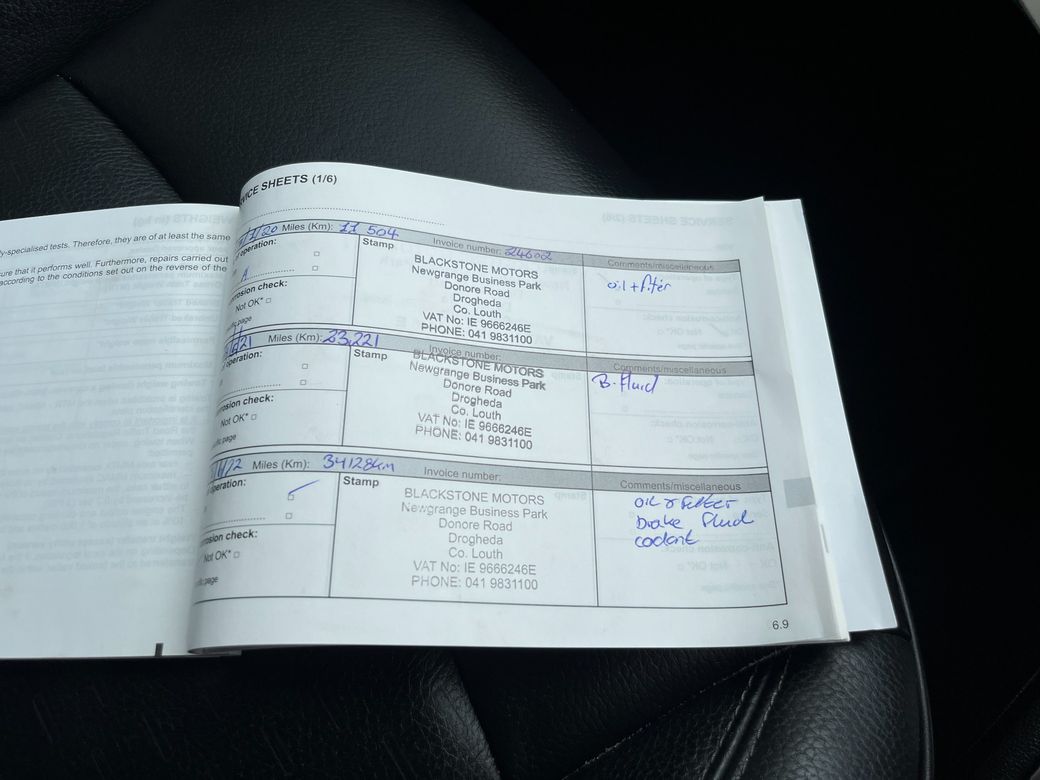 VICE SHEETS (1/6)
y-specialised tests. Therefore, they are of at least the same
ure that it performs well. Furthermore, repairs carried out
according to the conditions set out on the reverse of the
/1/20 Miles (Km): 11 504
operation:
A
rosion check:
Not OK*
ific page
Stamp
Invoice number: 24602
BLACKSTONE MOTORS
Newgrange Business Park
Donore Road
Drogheda
Co. Louth
VAT No: IE 9666246E
PHONE: 041 9831100
Comments/miscellaneous
oil + filter
/21 Miles (Km): 23,221
operation:
rosion check:
Not OK*
ific page
Stamp
Invoice number:
BLACKSTONE MOTORS
Newgrange Business Park
Donore Road
Drogheda
Co. Louth
VAT No: IE 9666246E
PHONE: 041 9831100
Comments/miscellaneous
B. Fluid
/22 Miles (Km): 34128km
operation:
rosion check:
Not OK*
ific page
Stamp
Invoice number:
BLACKSTONE MOTORS
Newgrange Business Park
Donore Road
Drogheda
Co. Louth
VAT No: IE 9666246E
PHONE: 041 9831100
Comments/miscellaneous
oil & filter
brake fluid
coolant
6.9